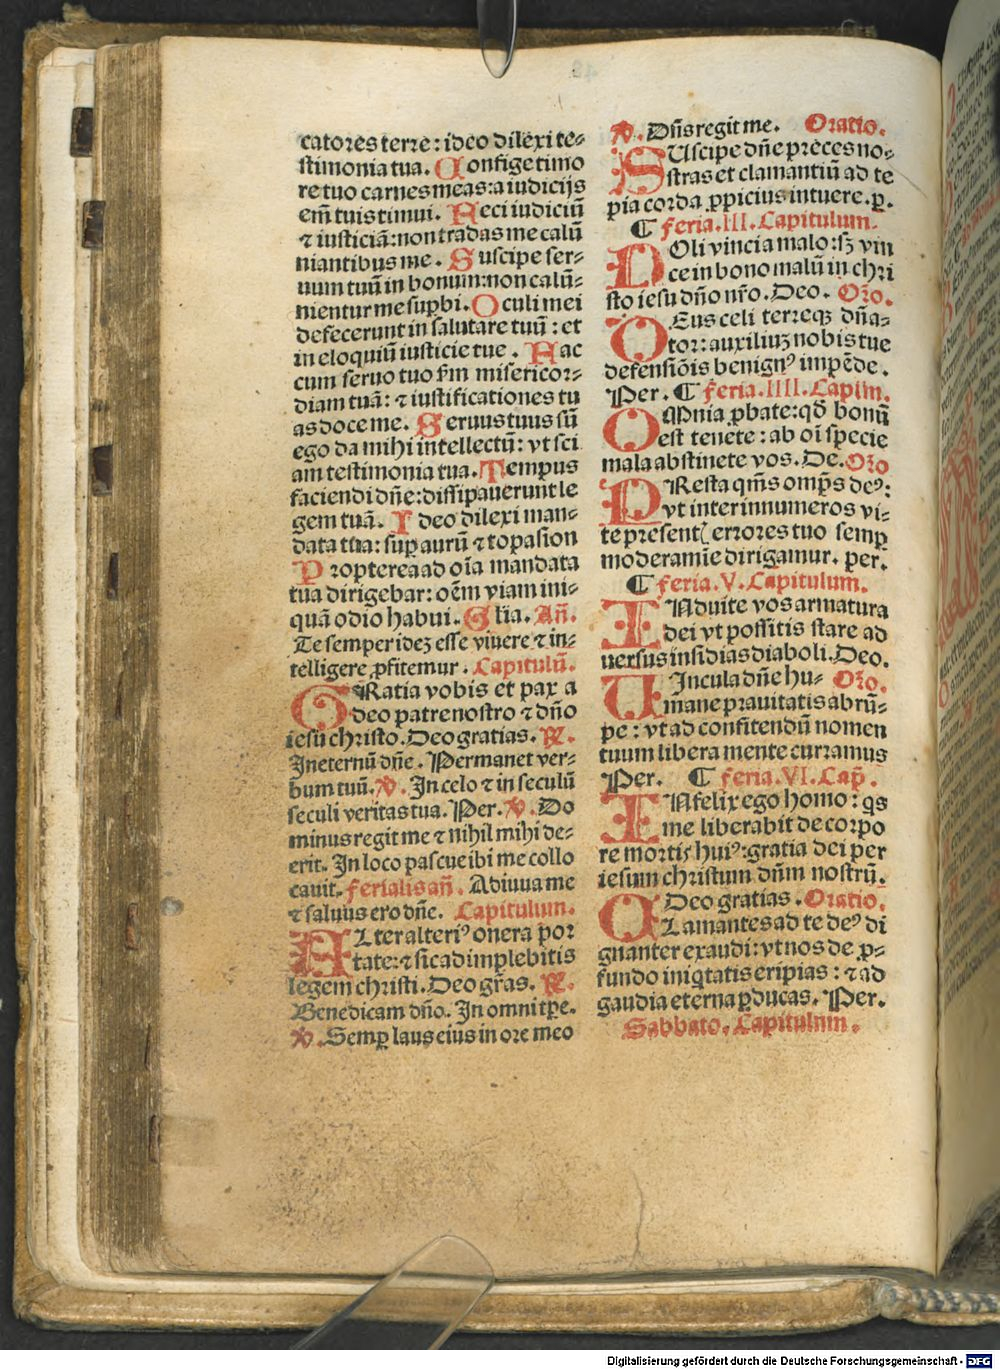 catores terre: ideo dilexi te-
stimonia tua. Confige timo
re tuo carnes meas: a iudicijs
em̄ tuis timui. Feci iudiciū
⁊ iusticiā: non tradas me calū
niantibus me. Suscipe ser-
uum tuū in bonum: non calū-
nientur me suꝑbi. Oculi mei
defecerunt in salutare tuū: et
in eloquiū iusticie tue. Fac
cum seruo tuo ſm̄ misericor-
diam tuā: ⁊ iustificationes tu
as doce me. Seruus tuus sū
ego da mihi intellectū: vt sci
am testimonia tua. Tempus
faciendi dn̄e: dissipauerunt le
gem tuā. Ideo dilexi man-
data tua: suꝑ aurū ⁊ topasion
Propterea ad oīa mandata
tua dirigebar: oēm viam ini-
quā odio habui. Glia. Añ.
Te semper ideꝫ esse viuere ⁊ in-
telligere ꝓfitemur. Capitulū.
GRatia vobis et pax a
deo patre nostro ⁊ dn̄o
iesu christo. Deo gratias. ℟.
In eternū dn̄e. Permanet ver-
bum tuū. ℣. In celo ⁊ in seculū
seculi veritas tua. Per. ℣. Do
minus regit me ⁊ nihil mihi de-
erit. In loco pascue ibi me collo
cauit. ferialis añ. Adiuua me
⁊ saluus ero dn̄e. Capitulum.
ALter alteriꝰ onera por
tate: ⁊ sic adimplebitis
legem christi. Deo grās. ℟.
Benedicam dn̄o. In omni tꝑe.
℣. Semꝑ laus eius in ore meo
℣. Dn̄s regit me. Oratio.
SUscipe dn̄e preces no-
stras et clamantiū ad te
pia corda ꝓpicius intuere. ꝑ.
¶ feria. III. Capitulum.
NOli vinci a malo: sꝫ vin
ce in bono malū in chri
sto iesu dn̄o nr̄o. Deo. Oro.
DEus celi terreqꝫ dn̄a-
tor: auxiliuꝫ nobis tue
defensiōis benignꝰ impēde.
Per. ¶ feria. IIII. Capl̄m.
OMnia ꝓbate: qđ bonū
est tenete: ab oī specie
mala abstinete vos. De. Oro
PResta qm̄s omp̄s deꝰ:
vt inter innumeros vi-
te presentꝭ errores tuo semꝑ
moderamīe dirigamur. per.
¶ feria. V. Capitulum.
INduite vos armatura
dei vt possitis stare ad
uersus insidias diaboli. Deo.
UIncula dn̄e hu- Oro.
mane prauitatis abrū-
pe: vt ad confitendū nomen
tuum libera mente curramus
Per. ¶ feria. VI. Cap̄.
INfelix ego homo: qs
me liberabit de corpo
re mortis huiꝰ: gratia dei per
iesum christum dn̄m nostrū.
Deo gratias. Oratio.
CLamantes ad te deꝰ di
gnanter exaudi: vt nos de ꝓ-
fundo iniqtatis eripias: ⁊ ad
gaudia eterna ꝑducas. Per.
Sabbato. Capitulum.
Digitalisierung gefördert durch die Deutsche Forschungsgemeinschaft - DFG